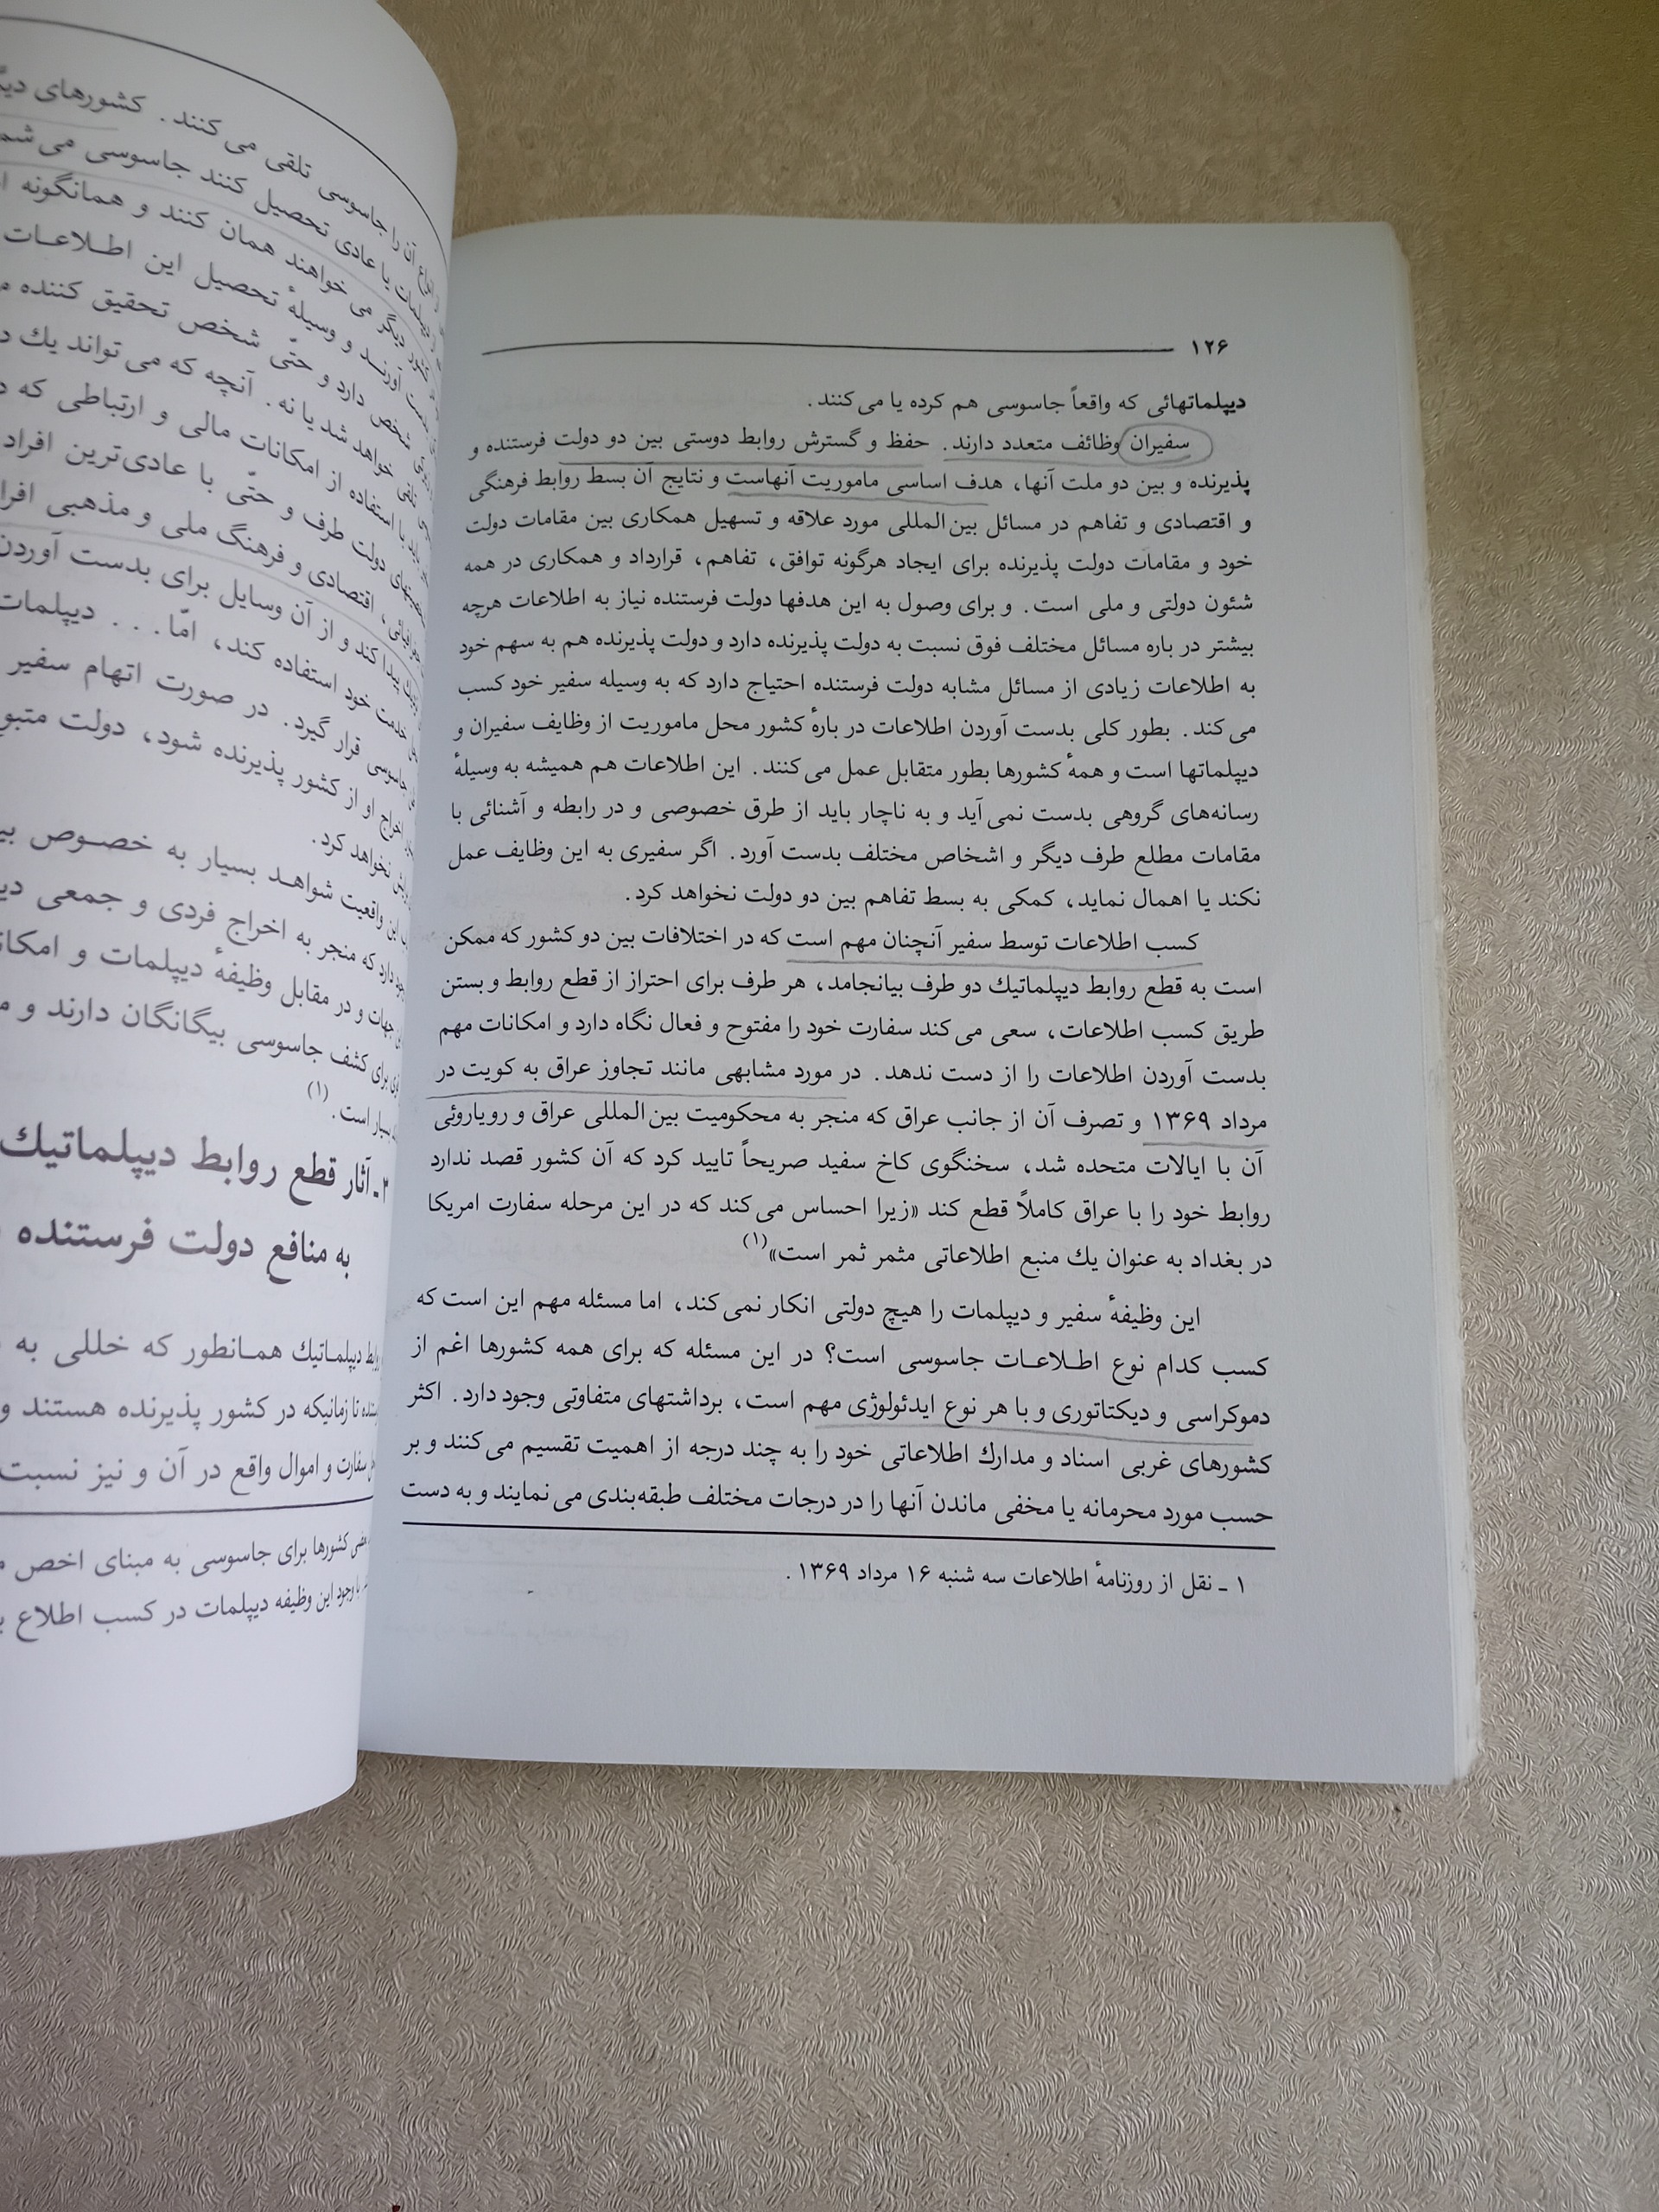 ۱۲۶
دیپلماتهائی که واقعاً جاسوسی هم کرده یا می‌کنند.
سفیران وظائف متعدد دارند. حفظ و گسترش روابط دوستی بین دو دولت فرستنده و
پذیرنده و بین دو ملت آنها، هدف اساسی ماموریت آنهاست و نتایج آن بسط روابط فرهنگی
و اقتصادی و تفاهم در مسائل بین‌المللی مورد علاقه و تسهیل همکاری بین مقامات دولت
خود و مقامات دولت پذیرنده برای ایجاد هرگونه توافق، تفاهم، قرارداد و همکاری در همه
شئون دولتی و ملی است. و برای وصول به این هدفها دولت فرستنده نیاز به اطلاعات هرچه
بیشتر در باره مسائل مختلف فوق نسبت به دولت پذیرنده دارد و دولت پذیرنده هم به سهم خود
به اطلاعات زیادی از مسائل مشابه دولت فرستنده احتیاج دارد که به وسیله سفیر خود کسب
می‌کند. بطور کلی بدست آوردن اطلاعات در بارهٔ کشور محل ماموریت از وظایف سفیران و
دیپلماتها است و همهٔ کشورها بطور متقابل عمل می‌کنند. این اطلاعات هم همیشه به وسیلهٔ
رسانه‌های گروهی بدست نمی‌آید و به ناچار باید از طرق خصوصی و در رابطه و آشنائی با
مقامات مطلع طرف دیگر و اشخاص مختلف بدست آورد. اگر سفیری به این وظایف عمل
نکند یا اهمال نماید، کمکی به بسط تفاهم بین دو دولت نخواهد کرد.
کسب اطلاعات توسط سفیر آنچنان مهم است که در اختلافات بین دو کشور که ممکن
است به قطع روابط دیپلماتیك دو طرف بیانجامد، هر طرف برای احتراز از قطع روابط و بستن
طریق کسب اطلاعات، سعی می‌کند سفارت خود را مفتوح و فعال نگاه دارد و امکانات مهم
بدست آوردن اطلاعات را از دست ندهد. در مورد مشابهی مانند تجاوز عراق به کویت در
مرداد ۱۳۶۹ و تصرف آن از جانب عراق که منجر به محکومیت بین‌المللی عراق و رویاروئی
آن با ایالات متحده شد، سخنگوی کاخ سفید صریحاً تایید کرد که آن کشور قصد ندارد
روابط خود را با عراق کاملاً قطع کند «زیرا احساس می‌کند که در این مرحله سفارت امریکا
در بغداد به عنوان یك منبع اطلاعاتی مثمر ثمر است»(۱)
این وظیفهٔ سفیر و دیپلمات را هیچ دولتی انکار نمی‌کند، اما مسئله مهم این است که
کسب کدام نوع اطلاعات جاسوسی است؟ در این مسئله که برای همه کشورها اغم از
دموکراسی و دیکتاتوری و با هر نوع ایدئولوژی مهم است، برداشتهای متفاوتی وجود دارد. اکثر
کشورهای غربی اسناد و مدارك اطلاعاتی خود را به چند درجه از اهمیت تقسیم می‌کنند و بر
حسب مورد محرمانه یا مخفی ماندن آنها را در درجات مختلف طبقه‌بندی می‌نمایند و به دست
۱ ـ نقل از روزنامهٔ اطلاعات سه شنبه ۱۶ مرداد ۱۳۶۹.
آن را جاسوسی تلقی می‌کنند. کشورهای
یا عادی تحصیل کنند جاسوسی
دیگر می‌خواهند همان کنند و همانگونه
آورند و وسیلهٔ تحصیل این اطلاعات
شخص دارد و حتّی شخص تحقیق کننده
تلقی خواهد شد یا نه. آنچه که می‌تواند یك
با استفاده از امکانات مالی و ارتباطی که
دولت طرف و حتّی با عادی‌ترین افراد
اقتصادی و فرهنگ ملی و مذهبی
پیدا کند و از آن وسایل برای بدست آوردن
خدمت خود استفاده کند، امّا... دیپلمات
جاسوسی قرار گیرد. در صورت اتهام سفیر
اخراج او از کشور پذیرنده شود، دولت
نخواهد کرد.
این واقعیت شواهد بسیار به خصوص
دارد که منجر به اخراج فردی و جمعی
جهات و در مقابل وظیفهٔ دیپلمات و
برای کشف جاسوسی بیگانگان دارند و
بسیار است.(۱)
۲ـ آثار قطع روابط دیپلماتیك
به منافع دولت فرستنده
دیپلماتیك همانطور که خللی به
تا زمانیکه در کشور پذیرنده هستند و
سفارت و اموال واقع در آن و نیز نسبت
کشورها برای جاسوسی به مبنای اخص
با وجود این وظیفه دیپلمات در کسب اطلاع